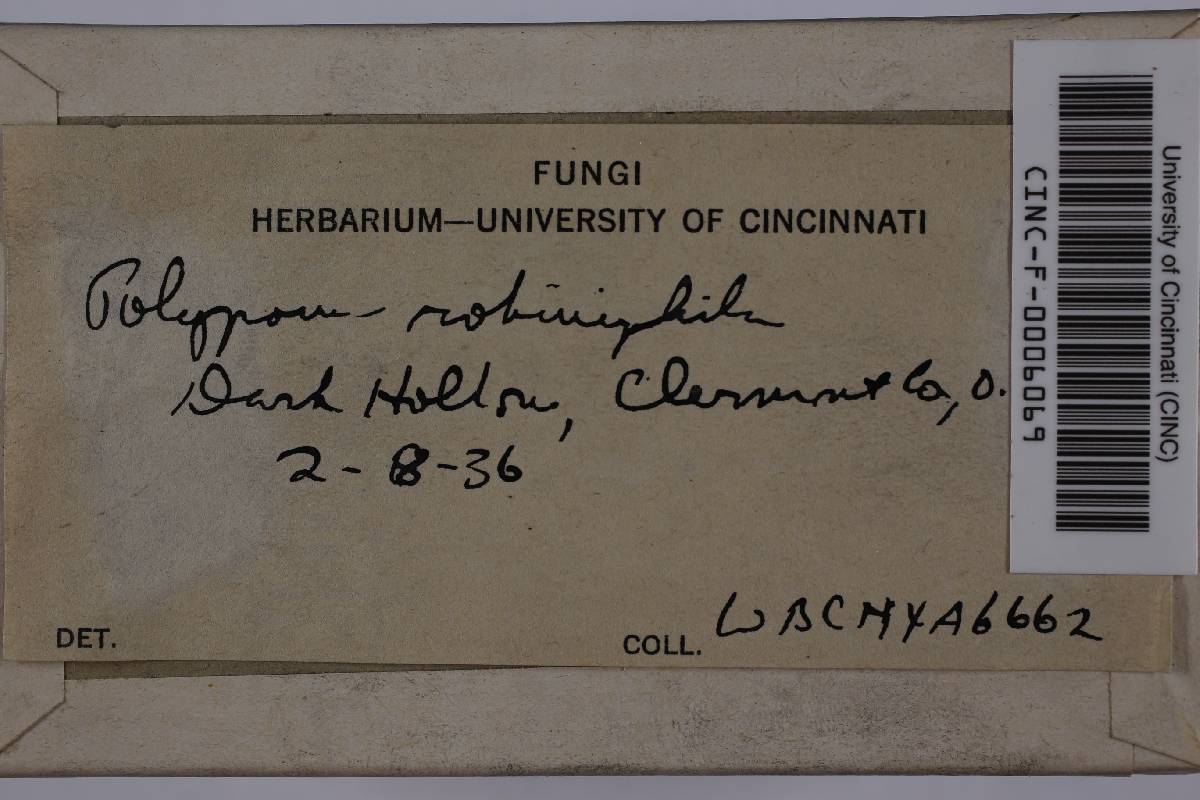 FUNGI
HERBARIUM—UNIVERSITY OF CINCINNATI
Polyporus robiniophila
Dark Hollow, Clermont Co, O.
2-8-36
DET.
COLL. WBC NYA6662
University of Cincinnati (CINC)
CINC-F-0006069